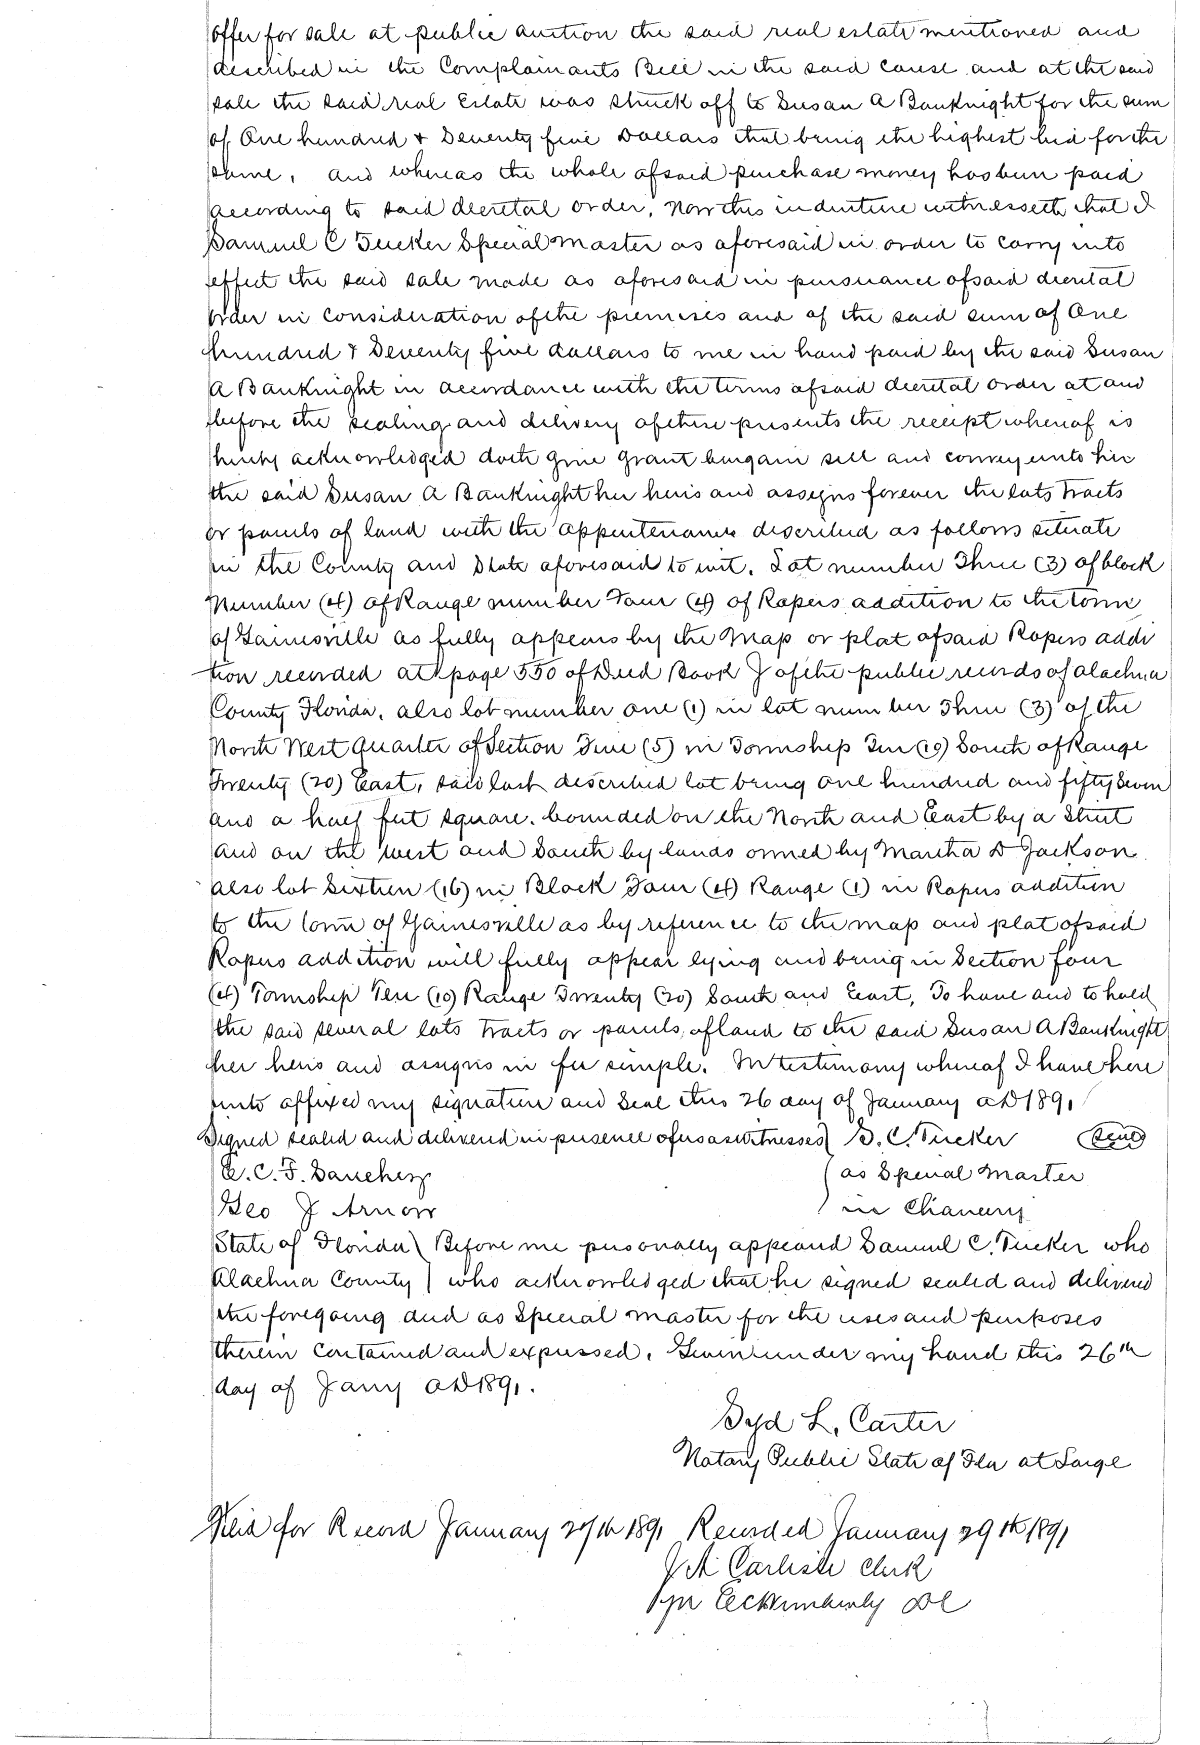 offer for sale at public auction the said real estate mentioned and
described in the Complainants Bill in the said cause and at the said
sale the said real Estate was struck off to Susan A Bauknight for the sum
of One hundred & Seventy five Dollars that being the highest bid for the
same, and whereas the whole of said purchase money has been paid
according to said decretal order, Now this indenture witnesseth that I
Samuel C Tucker Special Master as aforesaid in order to carry into
effect the said sale made as aforesaid in pursuance of said decretal
order in consideration of the premises and of the said sum of One
hundred & Seventy five dollars to me in hand paid by the said Susan
A Bauknight in accordance with the terms of said decretal order at and
before the sealing and delivery of these presents the receipt whereof is
hereby acknowledged doth give grant bargain sell and convey unto her
the said Susan A Bauknight her heirs and assigns forever the lots tracts
or parcels of land with the appurtenances described as follows situate
in the County and State aforesaid to wit, Lot number Three (3) of block
Number (4) of Range number Four (4) of Ropers addition to the town
of Gainesville as fully appears by the Map or plat of said Ropers addi
tion recorded at page 550 of Deed Book J of the public records of Alachua
County Florida, also lot number one (1) in lot number Three (3) of the
North West Quarter of Section Five (5) in Township Ten (10) South of Range
Twenty (20) East, said last described lot being one hundred and fifty Seven
and a half feet square. bounded on the North and East by a Street
and on the west and South by lands owned by Martha D Jackson
also lot Sixteen (16) in Block Four (4) Range (1) in Ropers addition
to the town of Gainesville as by reference to the map and plat of said
Ropers addition will fully appear lying and being in Section four
(4) Township Ten (10) Range Twenty (20) South and East, To have and to hold
the said several lots tracts or parcels of land to the said Susan A Bauknight
her heirs and assigns in fee simple. In testimony whereof I have here
unto affixed my signature and Seal this 26 day of January AD 1891
Signed sealed and delivered in presence of us as witnesses S. C. Tucker Seal
E. C. F. Sanchez as Special Master
Geo J Arnow in Chancery
State of Florida Before me personally appeared Samuel C. Tucker who
Alachua County who acknowledged that he signed sealed and delivered
the foregoing deed as Special Master for the uses and purposes
therein contained and expressed. Given under my hand this 26th
day of Jany AD 1891.
Syd L. Carter
Notary Public State of Fla at Large
Filed for Record January 27th 1891 Recorded January 29th 1891
J A Carlisle Clerk
per DC